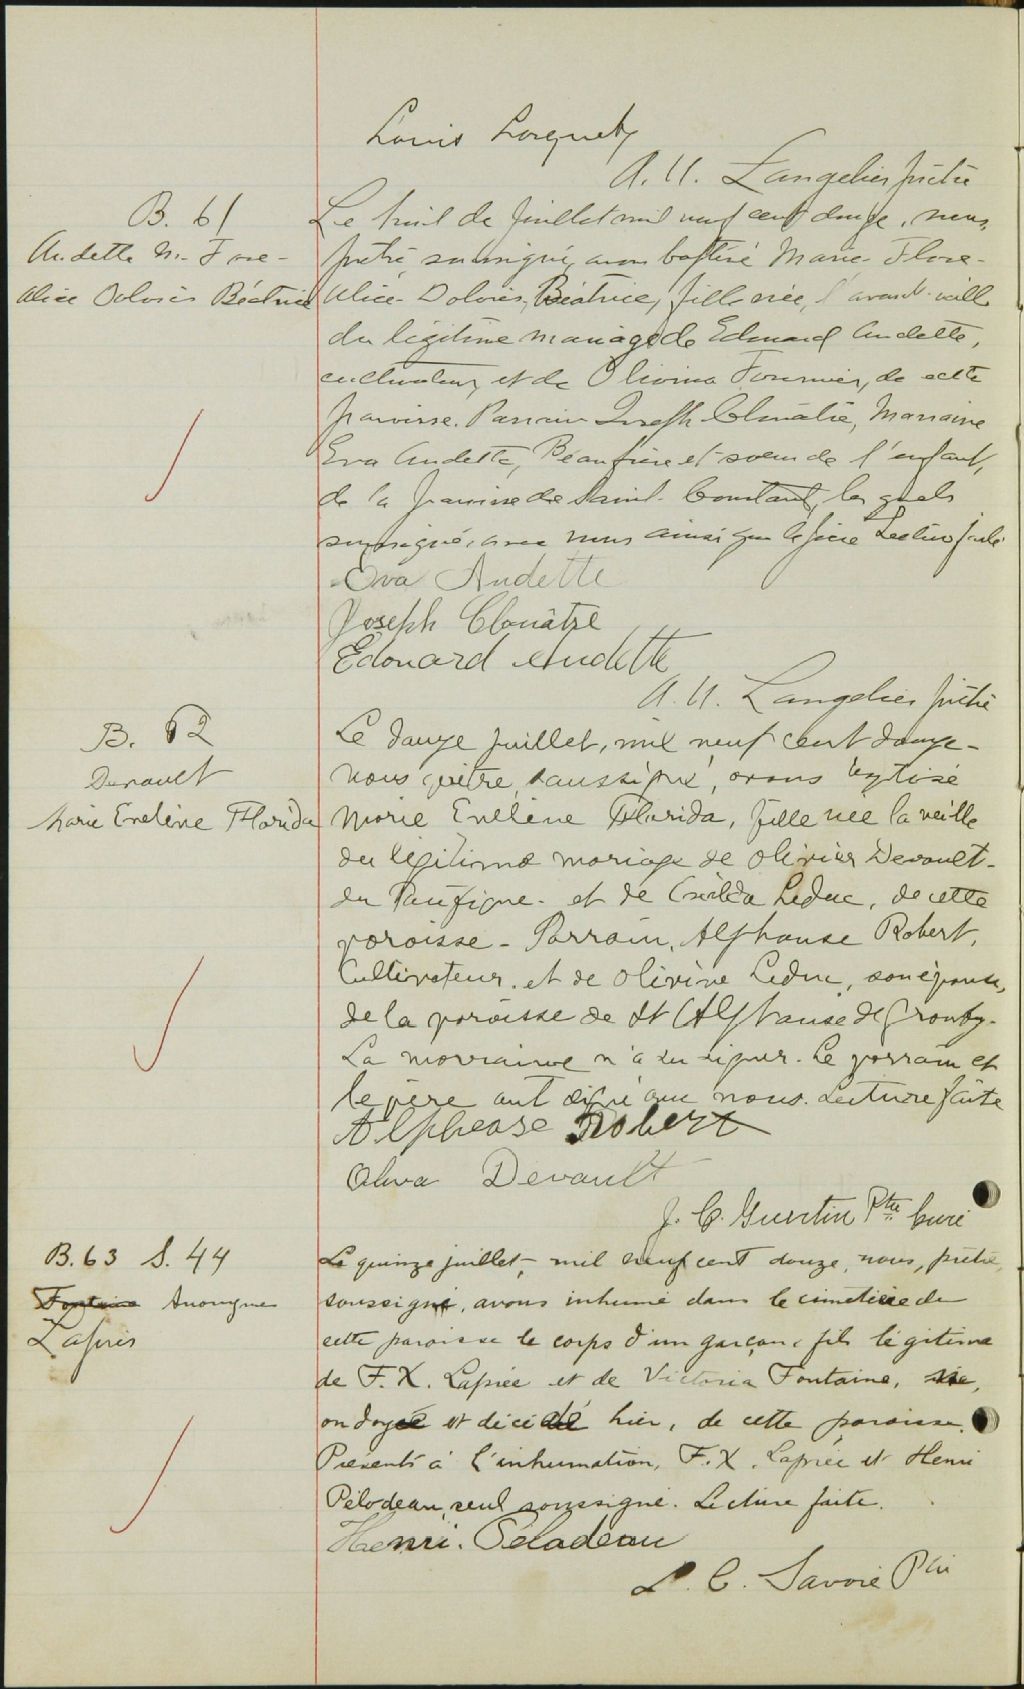 Louis Longuety
A. U. Langelier prêtre
B. 61
Audette M. Flore-
Alice Dolorès Béatrice
Le huit de juillet mil neuf cent douze, nous,
prêtre soussigné, avons baptisé Marie-Flore-
Alice-Dolorès, Béatrice, fille née, l'avant-veille
du légitime mariage de Edouard Audette,
cultivateur, et de Olivina Fournier, de cette
paroisse. Parrain Joseph Clouâtre, Marraine
Eva Audette, Beaufrère et soeur de l'enfant,
de la paroisse de Saint-Constant, les quels
soussigné, avec nous ainsi que le père Lecture faite
Eva Audette
Joseph Clouâtre
Edouard Audette
A. U. Langelier prêtre
B. 62
Devault
Marie Eveline Florida
Le douze juillet, mil neuf cent douze-
nous prêtre soussigné, avons baptisé
Marie Eveline Florida, fille née la veille
du légitime mariage de Olivier Devault-
du Pacifique- et de Exilda Leduc, de cette
paroisse- Parrain, Alphonse Robert,
Cultivateur, et de Olivine Leduc, son épouse,
de la paroisse de St Alphonse de Granby-
La marraine n'a su signer. Le parrain et
le père ont signé avec nous. Lecture faite
Alphonse Robert
Oliva Devault
J. C. Guertin Ptre Curé
B. 63 S. 44
Fontaine Anonyme
Lapris
Le quinze juillet, mil neuf cent douze, nous, prêtre,
soussigné, avons inhumé dans le cimetière de
cette paroisse le corps d'un garçon, fils légitime
de F. X. Lapriée et de Victoria Fontaine, née,
ondoyé et décédé hier, de cette paroisse.
Présents à l'inhumation, F. X. Lapriée et Henri
Péladeau, seul soussigné. Lecture faite.
Henri. Péladeau
L. C. Savoie Ptre